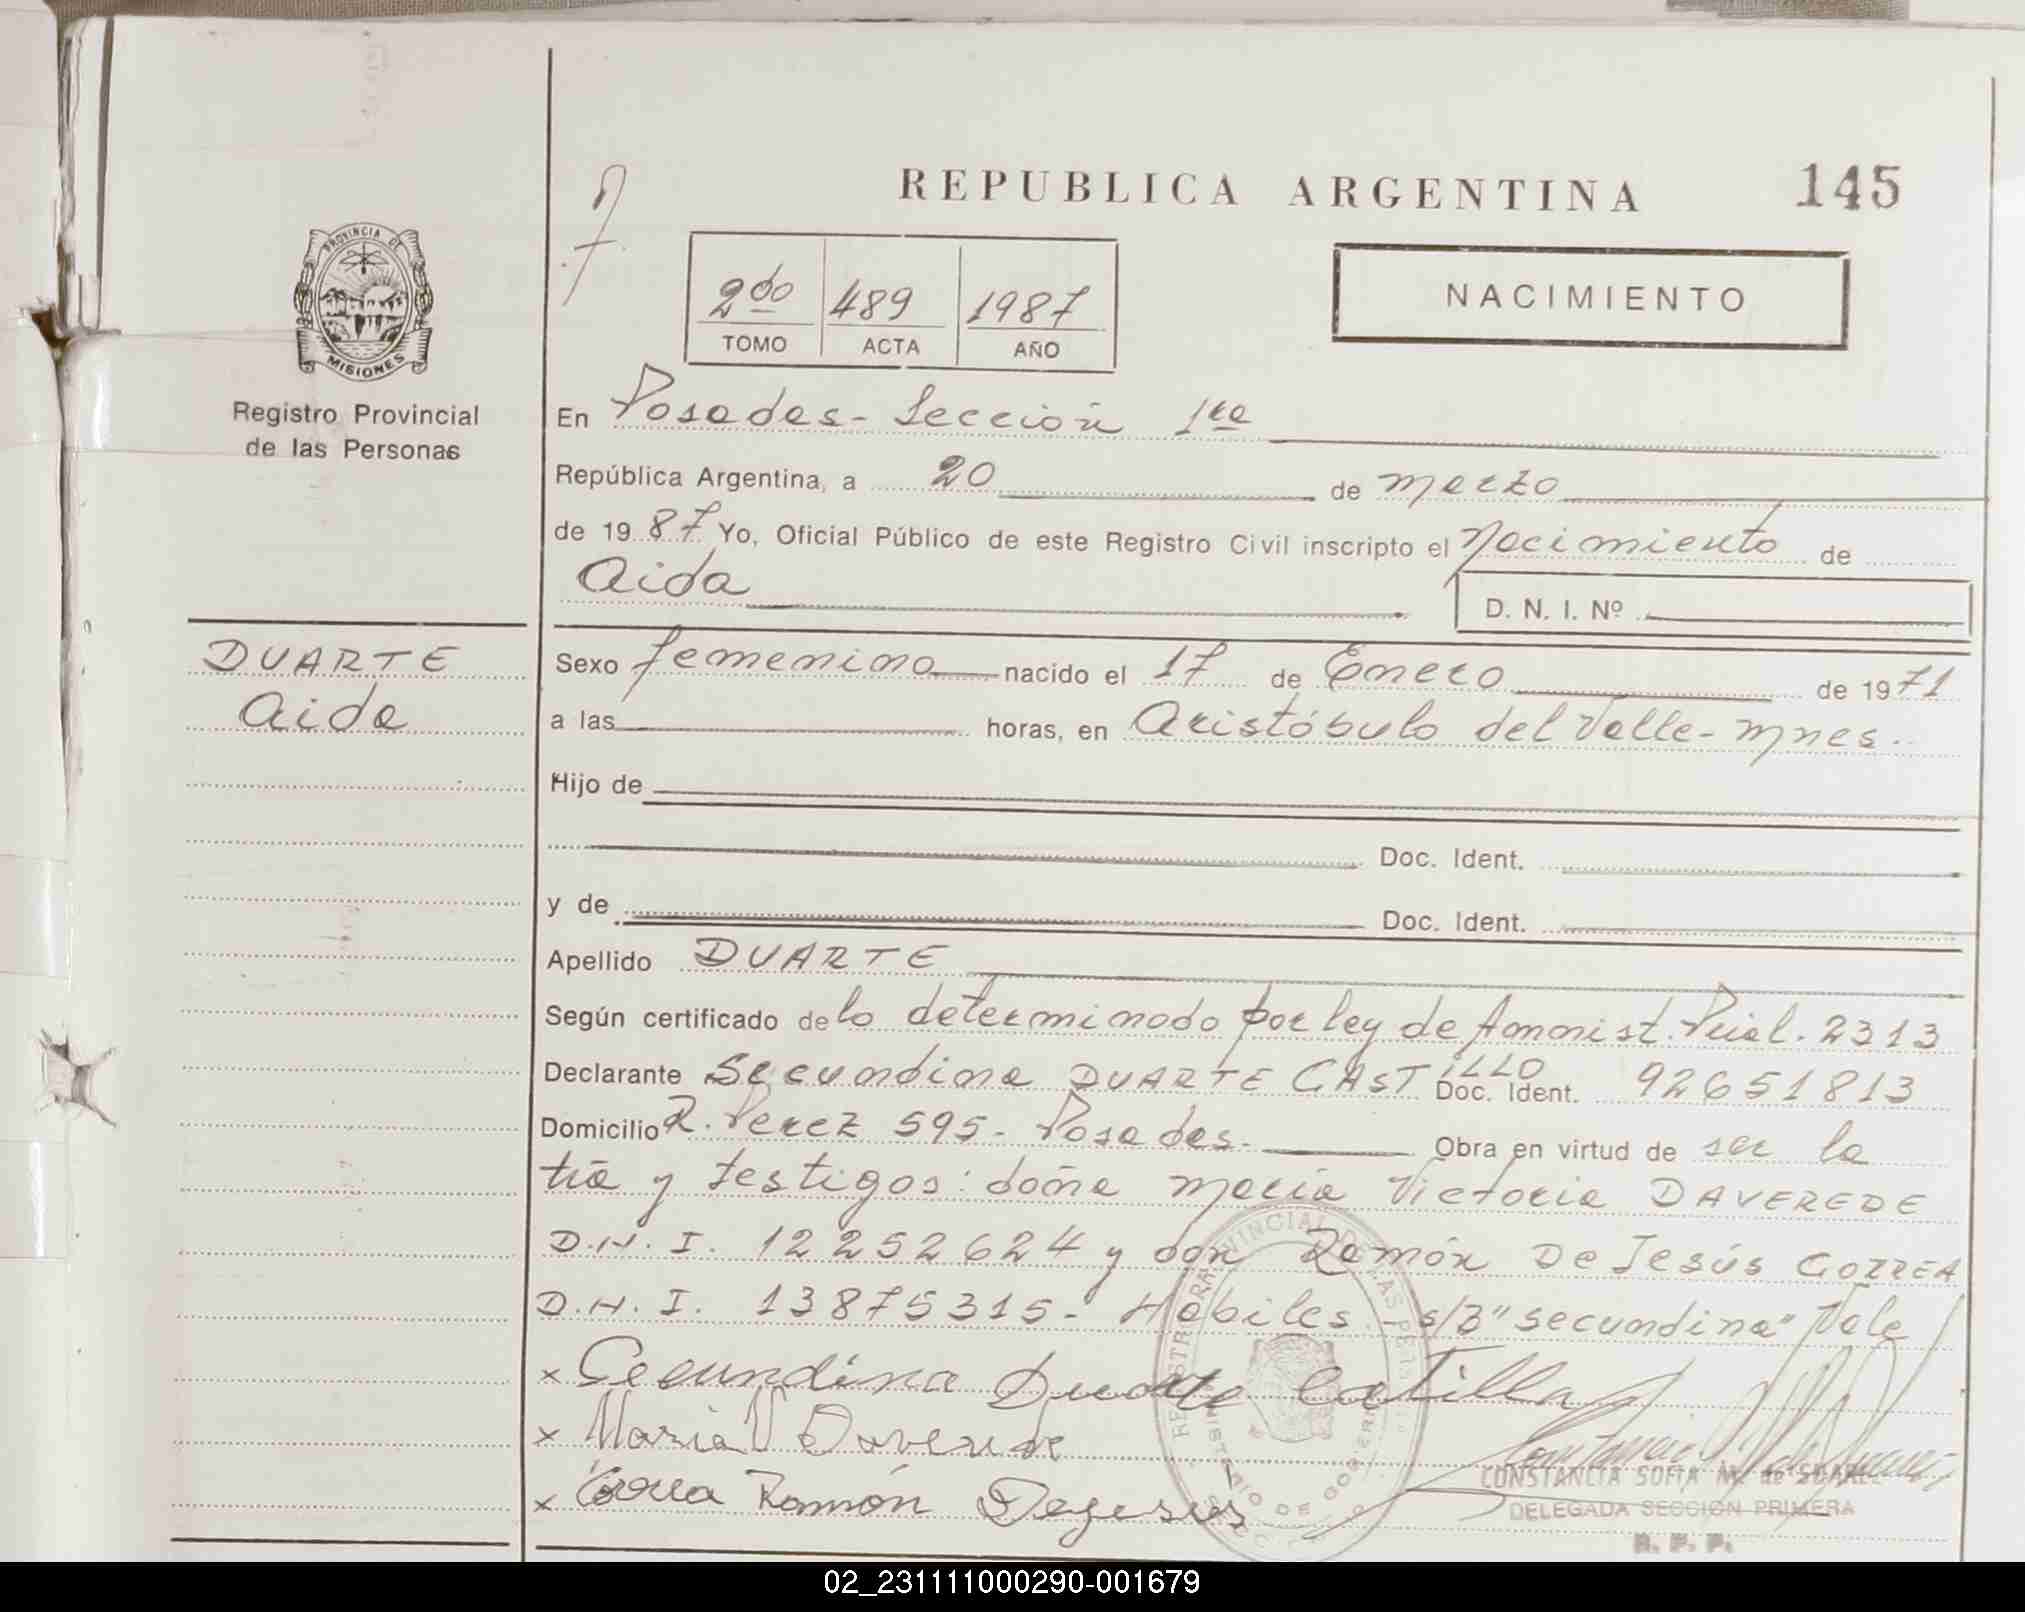 REPUBLICA ARGENTINA 145
PROVINCIA DE
MISIONES
Registro Provincial
de las Personas
2do 489 1987
TOMO ACTA AÑO
NACIMIENTO
En Posadas - Sección 1ra
República Argentina, a 20 de marzo
de 1987 Yo, Oficial Público de este Registro Civil inscripto el Nacimiento de
Aida
D. N. I. Nº
DUARTE
Aida
Sexo femenino nacido el 17 de Enero de 1971
a las horas, en Aristóbulo del Valle - Mnes.
Hijo de
Doc. Ident.
y de Doc. Ident.
Apellido DUARTE
Según certificado de lo determinado por ley de Amnist. Pcial. 2313
Declarante Secundina DUARTE CASTILLO Doc. Ident. 92651813
Domicilio R. Perez 595 - Posadas. Obra en virtud de ser la
tía y testigos: doña María Victoria DAVEREDE
D.N.I. 12252624 y don Ramón De Jesús CORREA
D.N.I. 13875315 - Habiles. - s/B "secundina" Vale
x Secundina Duarte Catilla
x Maria V Daverede
x Correa Ramón Dejesus
CONSTANCIA SOFIA M. de SUAREZ
DELEGADA SECCION PRIMERA
R. P. P.
02_231111000290-001679